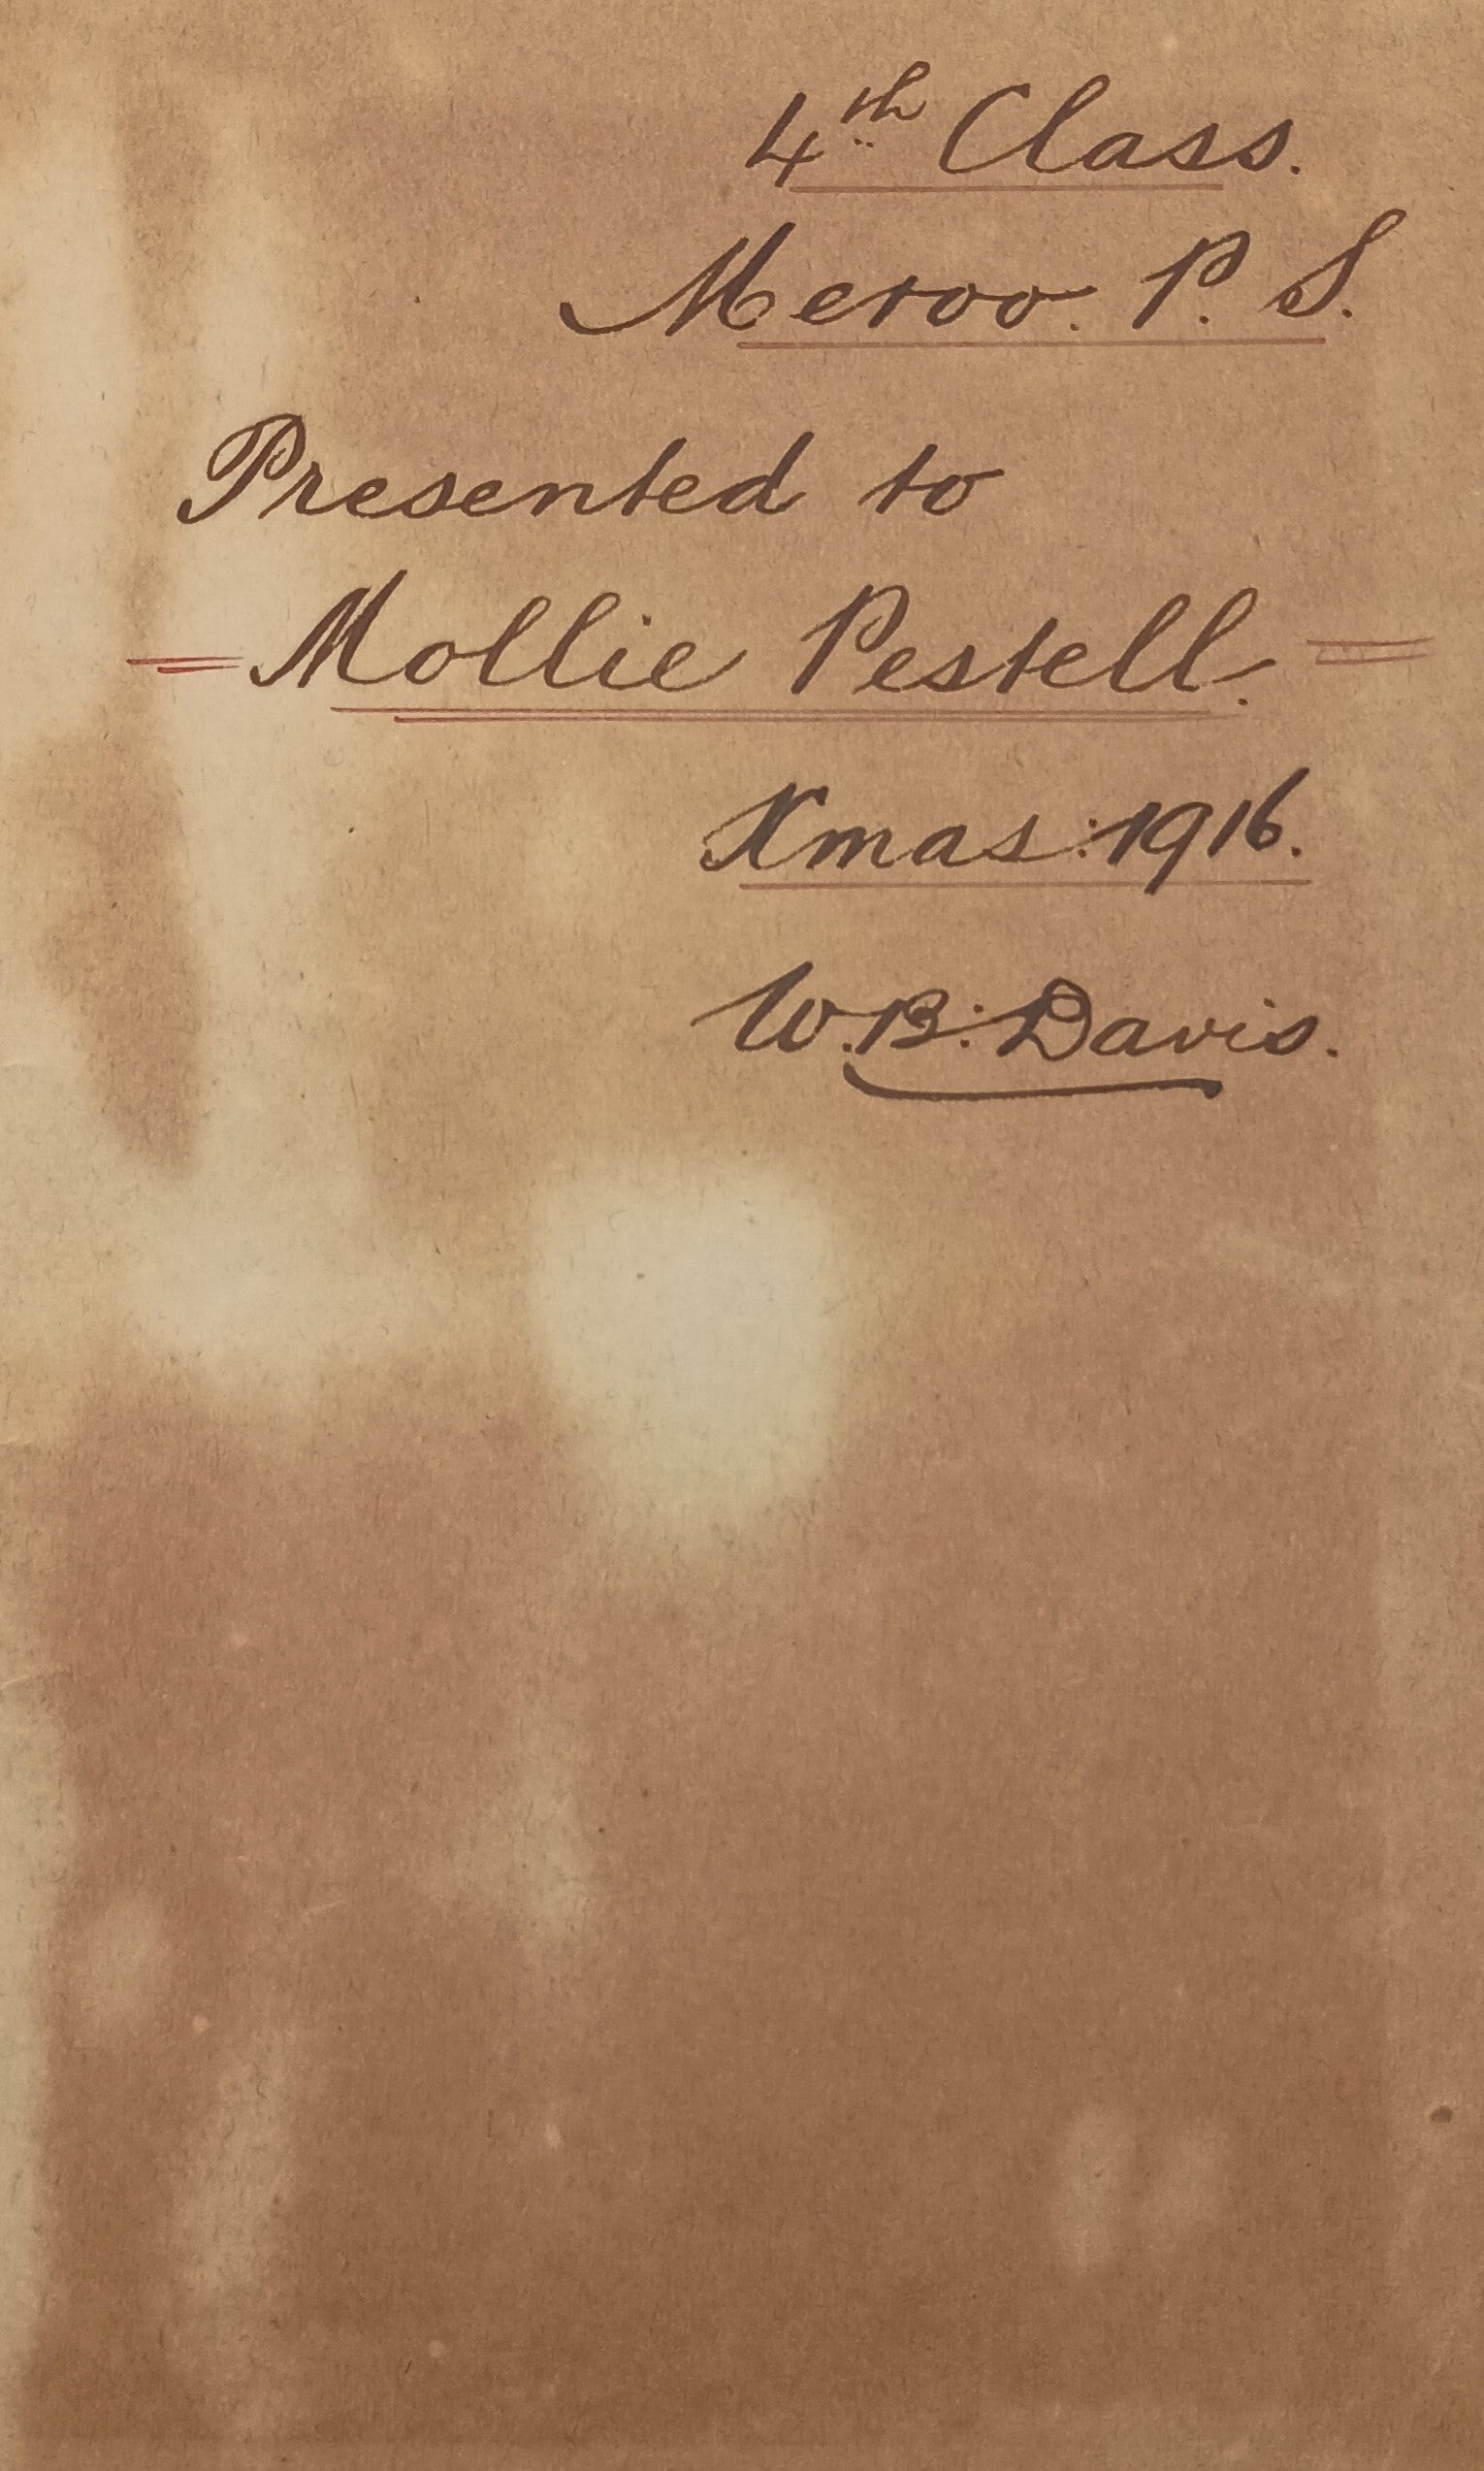 4th Class.
Meroo. P. S.
Presented to
= Mollie Pestell. =
Xmas: 1916.
W. B: Davis.